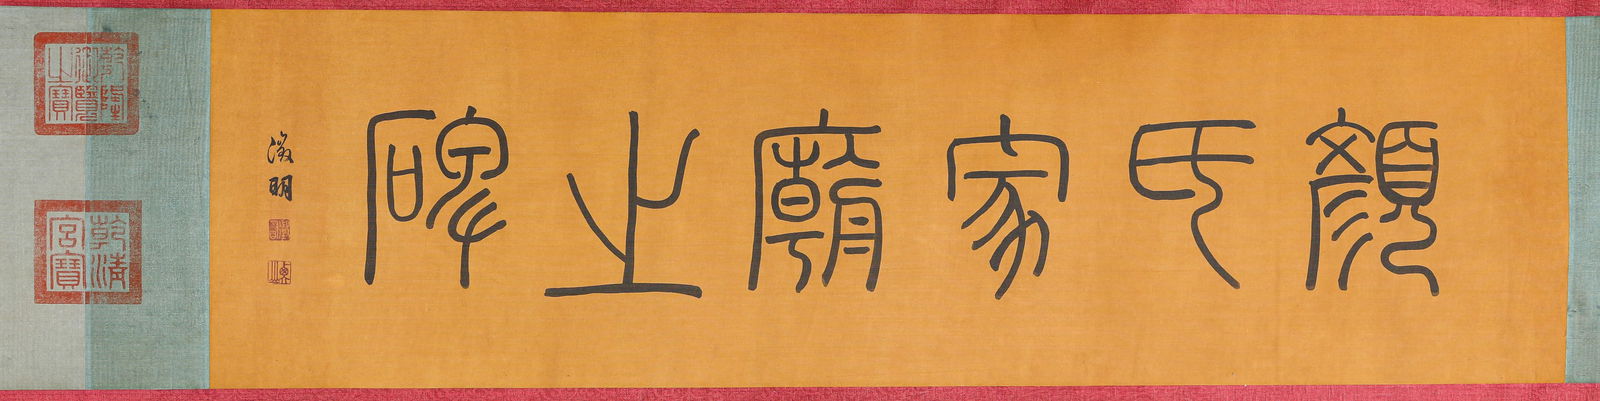 顏氏家廟之碑
徵明
乾隆御覽之寶
乾清宮寶